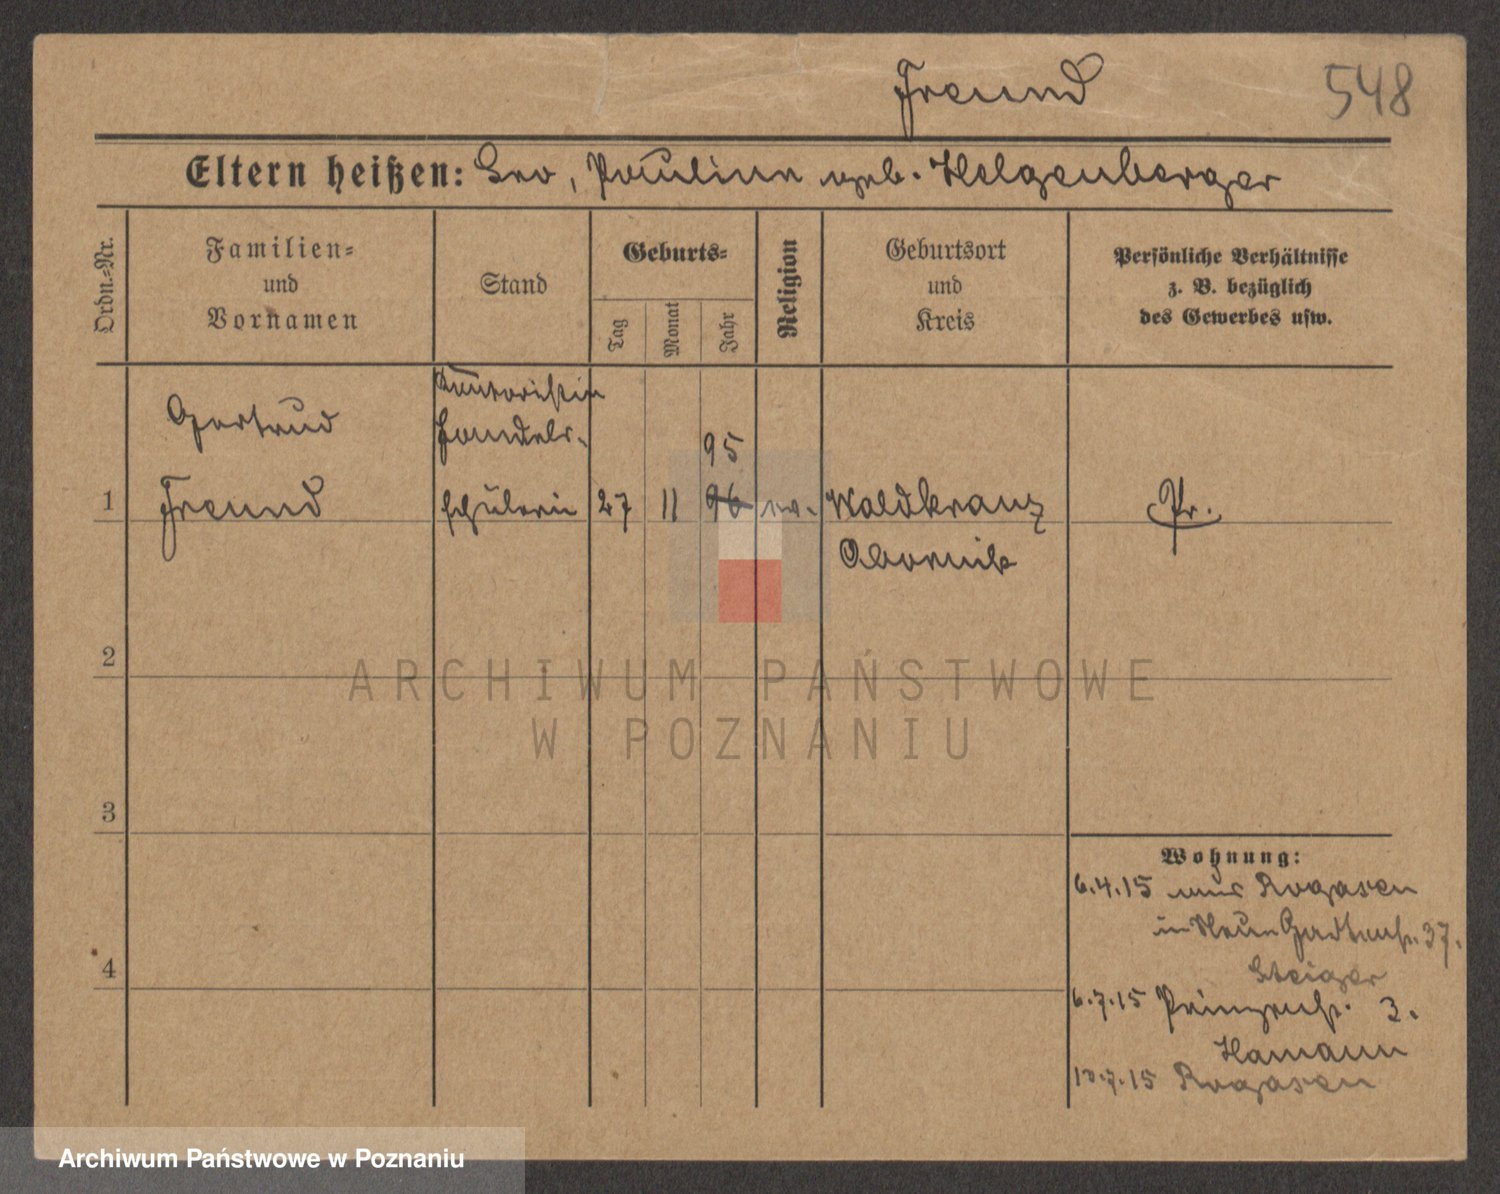 Freund
548
Eltern heißen: Leo, Pauline geb. Helgenberger
Ordn.=Nr.
Familien=
und
Vornamen
Stand
Geburts=
Tag
Monat
Jahr
Religion
Geburtsort
und
Kreis
Persönliche Verhältnisse
z. B. bezüglich
des Gewerbes usw.
Kontoristin
Gertrud
Handels-
95
1 Freund schülerin 27 11 96 ev. Waldkranz Pr.
Obornik
2
3
4
Wohnung:
6.4.15 aus Rogasen
in Neue Gartenstr. 37.
Steiger
6.7.15 Prinzenstr. 3.
Hamann
10.7.15 Rogasen
ARCHIWUM PAŃSTWOWE
W POZNANIU
Archiwum Państwowe w Poznaniu